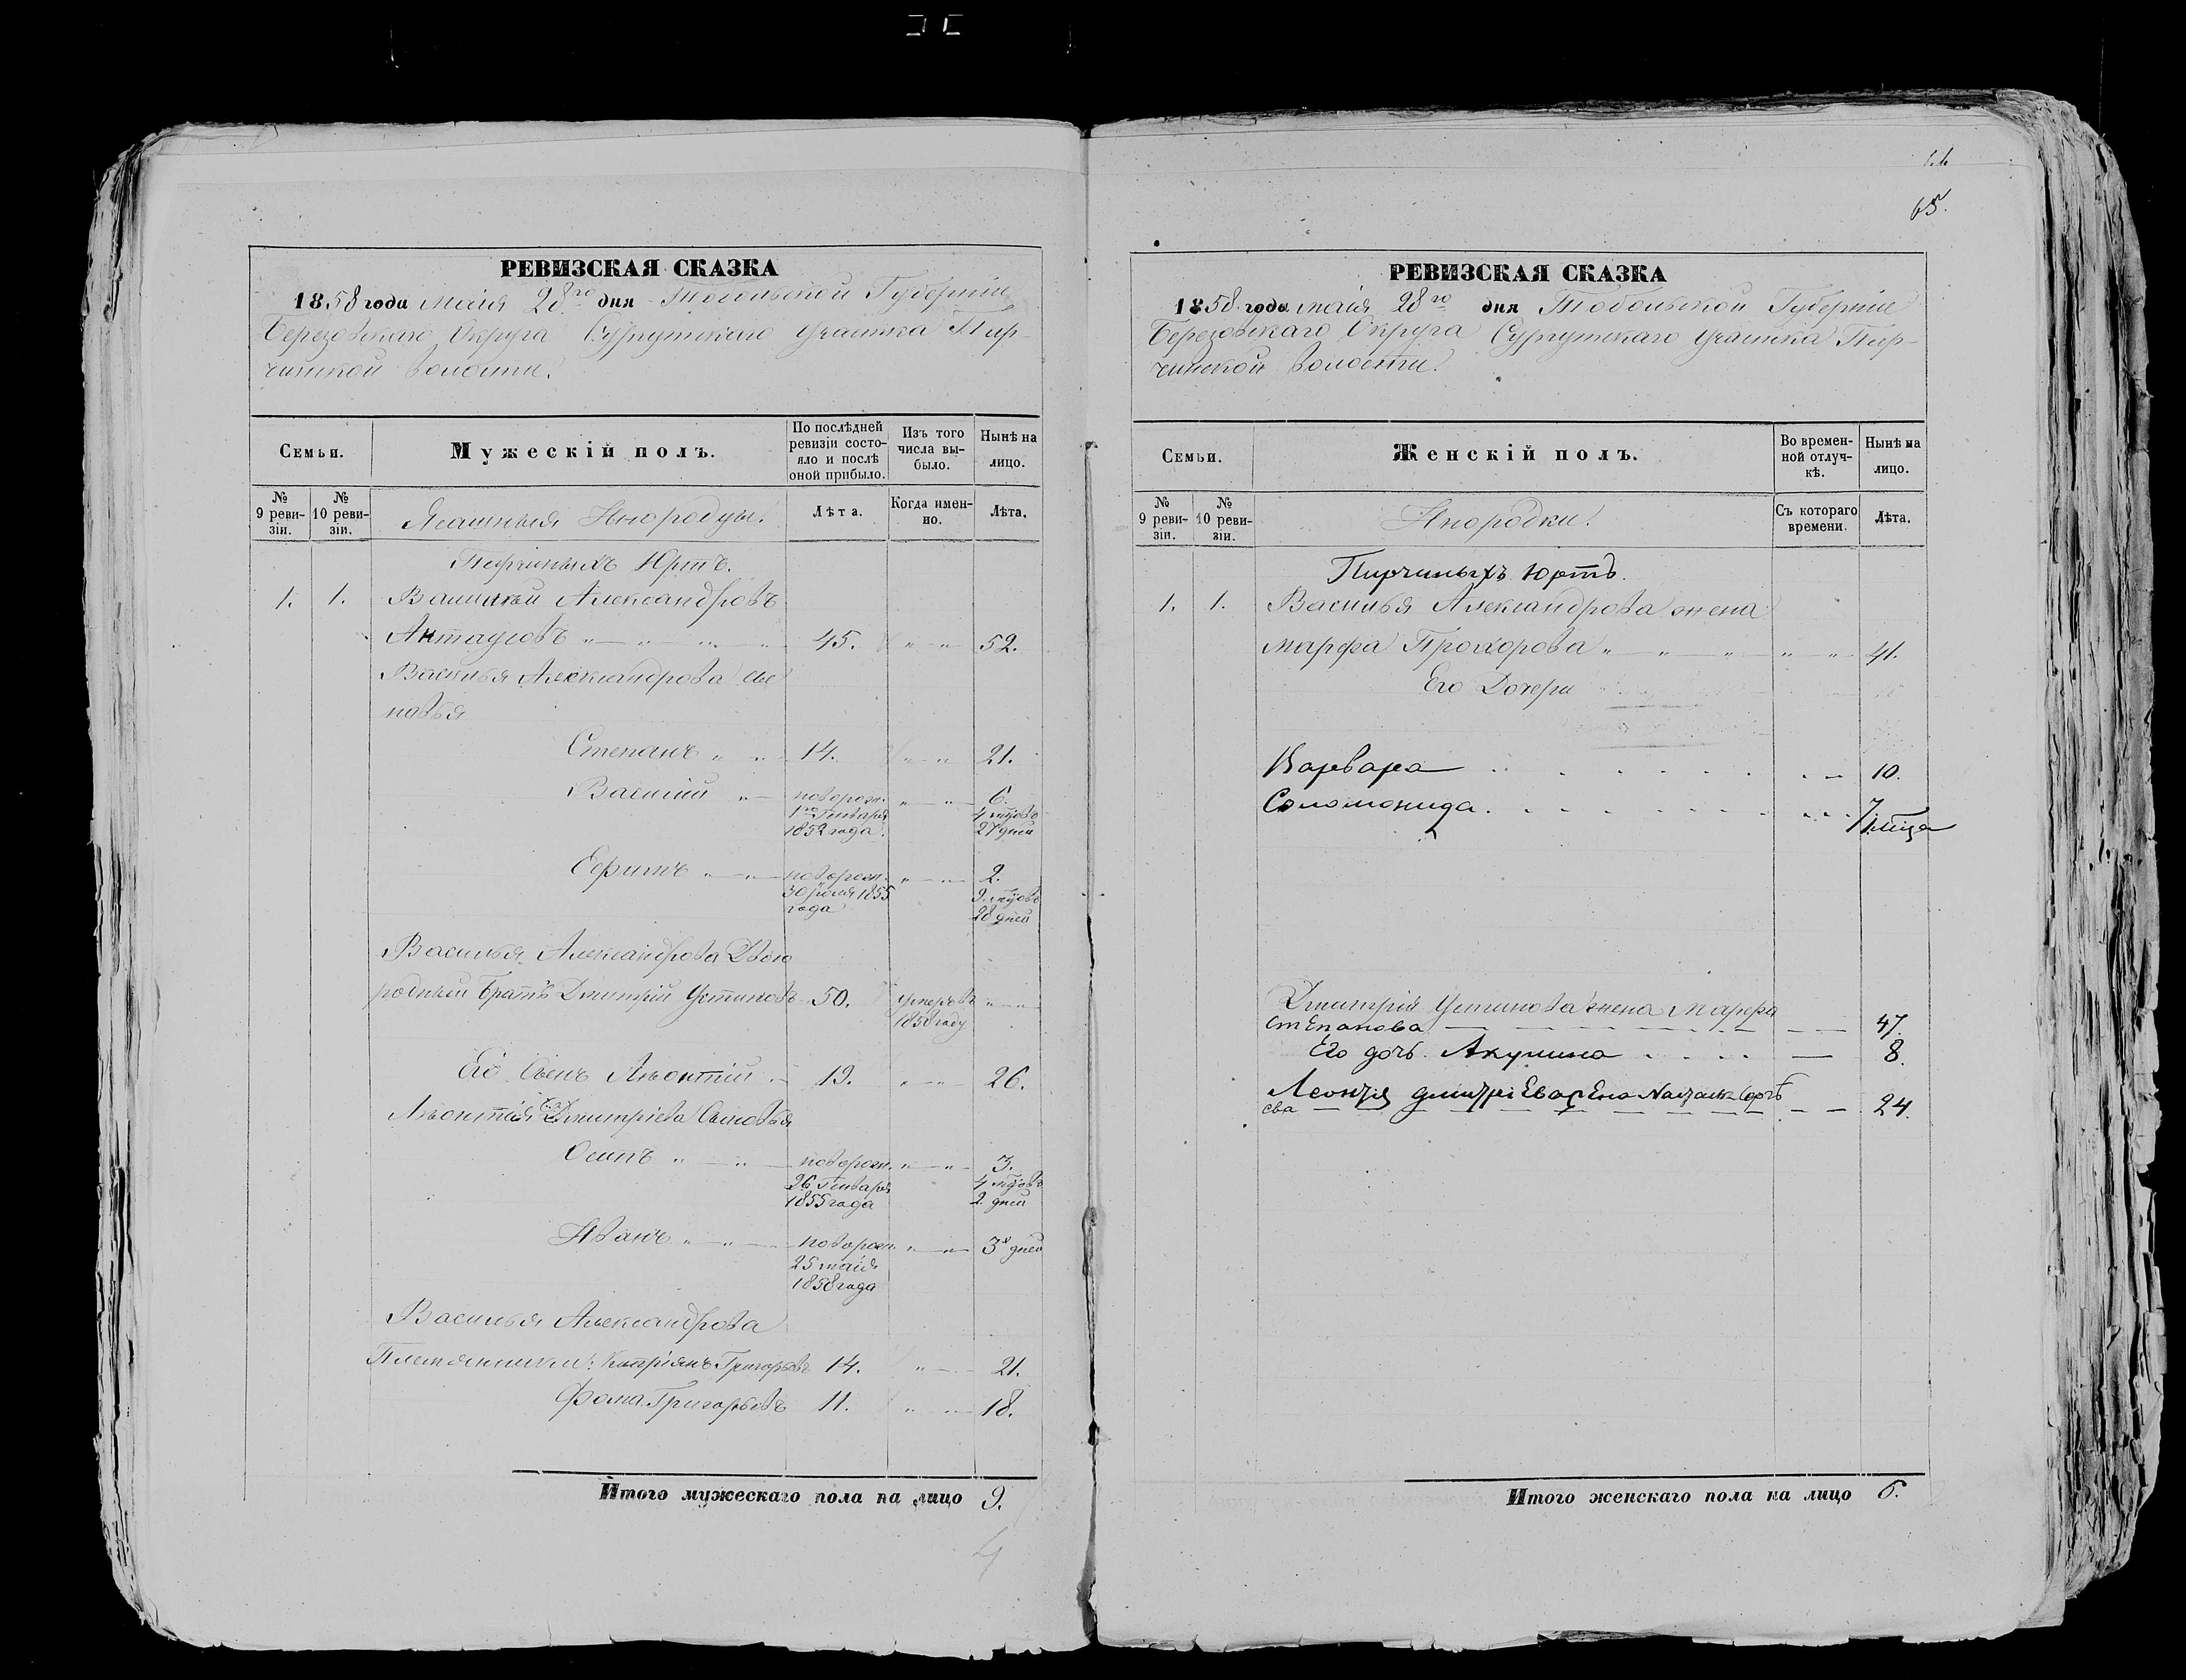 65.
РЕВИЗСКАЯ СКАЗКА
1858 года маія 28го дня Тобольской Губерніи
Березовскаго Округа Сургутскаго участка Пир-
чинской волости.
Семьи.
Мужескій полъ.
По послѣдней ревизіи состо-яло и послѣ оной прибыло.
Изъ того числа вы-было.
Нынѣ на лицо.
№ 9 реви-зіи.
№ 10 реви-зіи.
Ясашныя Инородцы.
Лѣта.
Когда имен-но.
Лѣта.
Пирчиныхъ Юртъ.
1. 1. Василій Александровъ
45. " " 52.
Василья Александрова сы
новья
Степанъ " " 14. " " 21.
Василій " новорож. " " 6.
1го Генваря 4 мцовъ
1852 года. 27 дней
Ефимъ " " новорож. " " 2.
30 Іюля 1855 9 мцовъ
года 28 дней
Василья Александрова Двою
родный Братъ Дмитрій Устиновъ 50. умеръ въ " "
1858 году
Его Сынъ Леонтій 19. " " 26.
Леонтія Дмитріева Сыновья
Осипъ " " новорож. " " 3.
26 Генваря 4 мцовъ
1855 года 2 дней
Иванъ " " новорож. " " 3 дней
25 маія
1858 года
Василья Александрова
Племянники: Григорьевъ 14. " 21.
Фома Григорьевъ 11. " " 18.
Итого мужескаго пола на лицо 9.
РЕВИЗСКАЯ СКАЗКА
1858 года маія 28го дня Тобольской Губерніи
Березовскаго Округа Сургутскаго участка Пир-
чинской волости.
Семьи.
Женскій полъ.
Во времен-ной отлуч-кѣ.
Нынѣ на лицо.
№ 9 реви-зіи.
№ 10 реви-зіи.
Инородки.
Съ котораго времени.
Лѣта.
Пирчиныхъ Юртъ.
1. 1. Василья Александрова жена
Марфа Прохорова " " " " " 41.
Его Дочери
Варвара 10.
Соломонида 7
мца
Дмитрія Устинова жена Марфа
стЕпанова 47.
Его дочь Акулина 8.
Леонтія дмитріЕва
ева 24.
Итого женскаго пола на лицо 6.